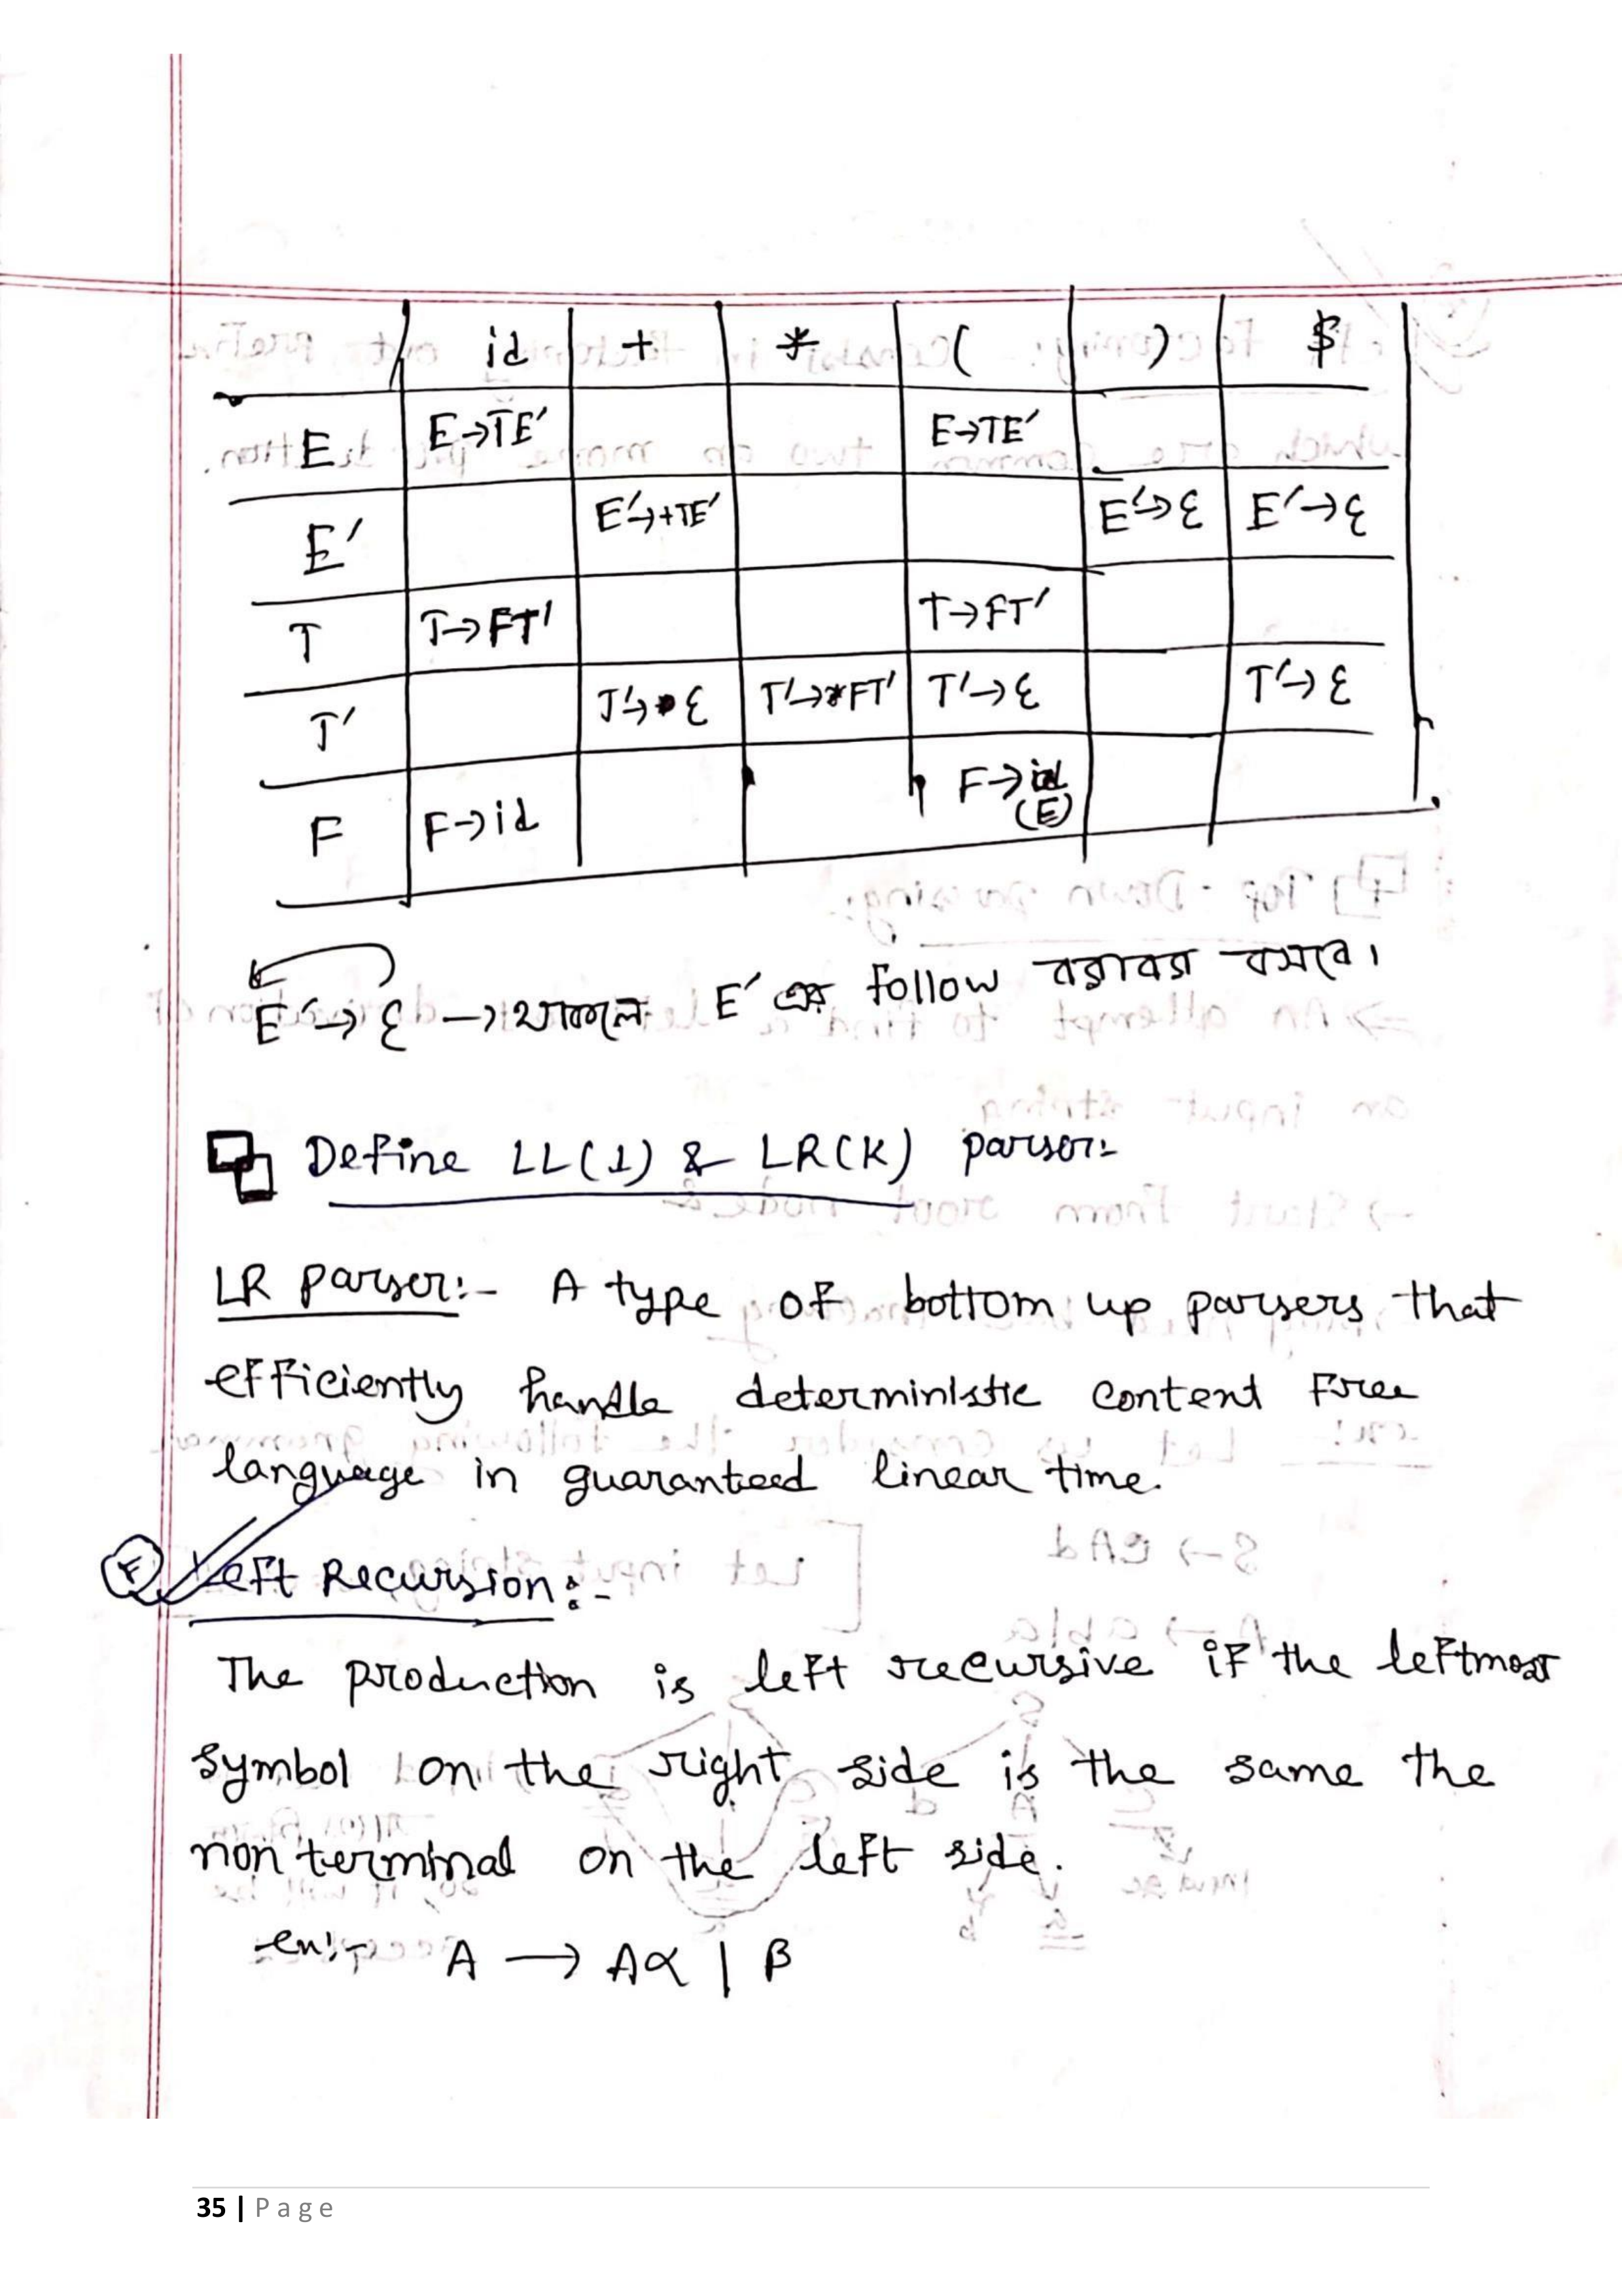 id + * ( ) $
E E→TE′ E→TE′
E′ E′→+TE′ E′→ε E′→ε
T T→FT′ T→FT′
T′ T′→ε T′→*FT′ T′→ε T′→ε
F F→id F→(E)
E′→ε →থাকলে E′ এর follow বরাবর বসবে।
Define LL(1) & LR(K) parser:-
LR Parser:- A type of bottom up parsers that
efficiently handle deterministic content free
language in guaranteed linear time.
Left Recursion:-
The production is left recursive if the leftmost
symbol on the right side is the same the
non terminal on the left side.
en:- A → Aα | β
35 | Page